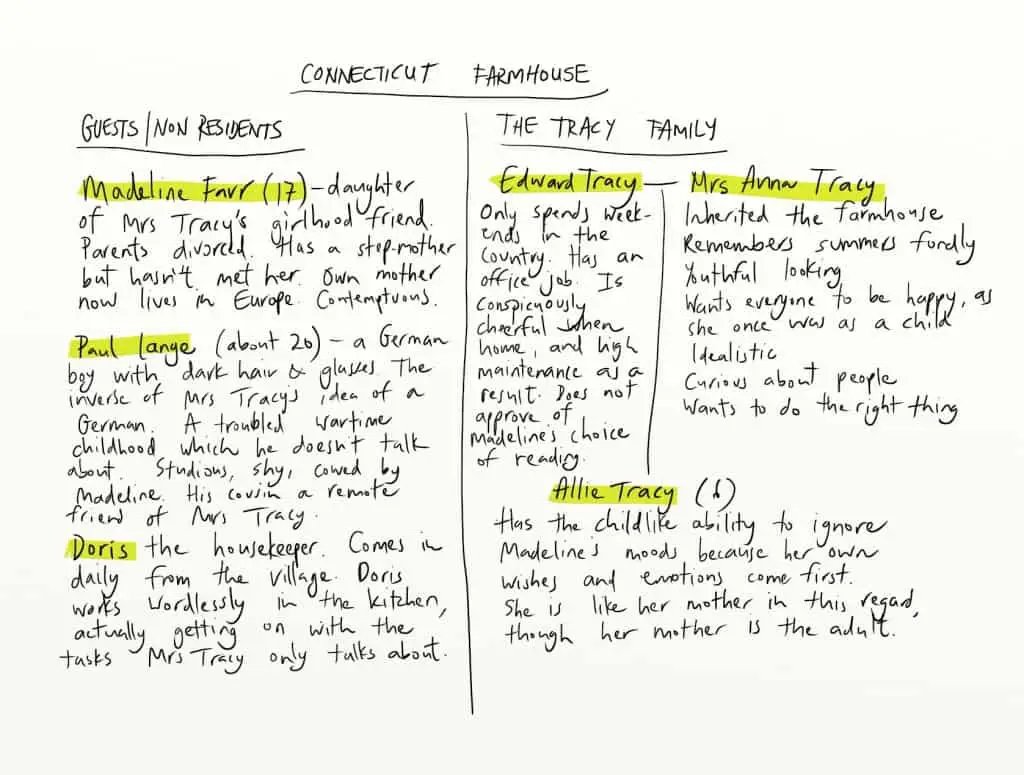 CONNECTICUT FARMHOUSE
GUESTS/NON RESIDENTS
Madeline Farr (17) - daughter
of Mrs Tracy's girlhood friend.
Parents divorced. Has a step-mother
but hasn't met her. Own mother
now lives in Europe. Contemptuous.
Paul Lange (about 20) - a German
boy with dark hair & glasses. The
inverse of Mrs Tracy's idea of a
German. A troubled wartime
childhood which he doesn't talk
about. Studious, shy, cowed by
Madeline. His cousin a remote
friend of Mrs Tracy.
Doris the housekeeper. Comes in
daily from the village. Doris
works wordlessly in the kitchen,
actually getting on with the
tasks Mrs Tracy only talks about.
THE TRACY FAMILY
Edward Tracy
Only spends week-
ends in the
country. Has an
office job. Is
conspicuously
cheerful when
home, and high
maintenance as a
result. Does not
approve of
Madeline's choice
of reading.
Mrs Anna Tracy
Inherited the farmhouse
Remembers summers fondly
Youthful looking
Wants everyone to be happy, as
she once was as a child
Idealistic
Curious about people
Wants to do the right thing
Allie Tracy (6)
Has the childlike ability to ignore
Madeline's moods because her own
wishes and emotions come first.
She is like her mother in this regard,
though her mother is the adult.